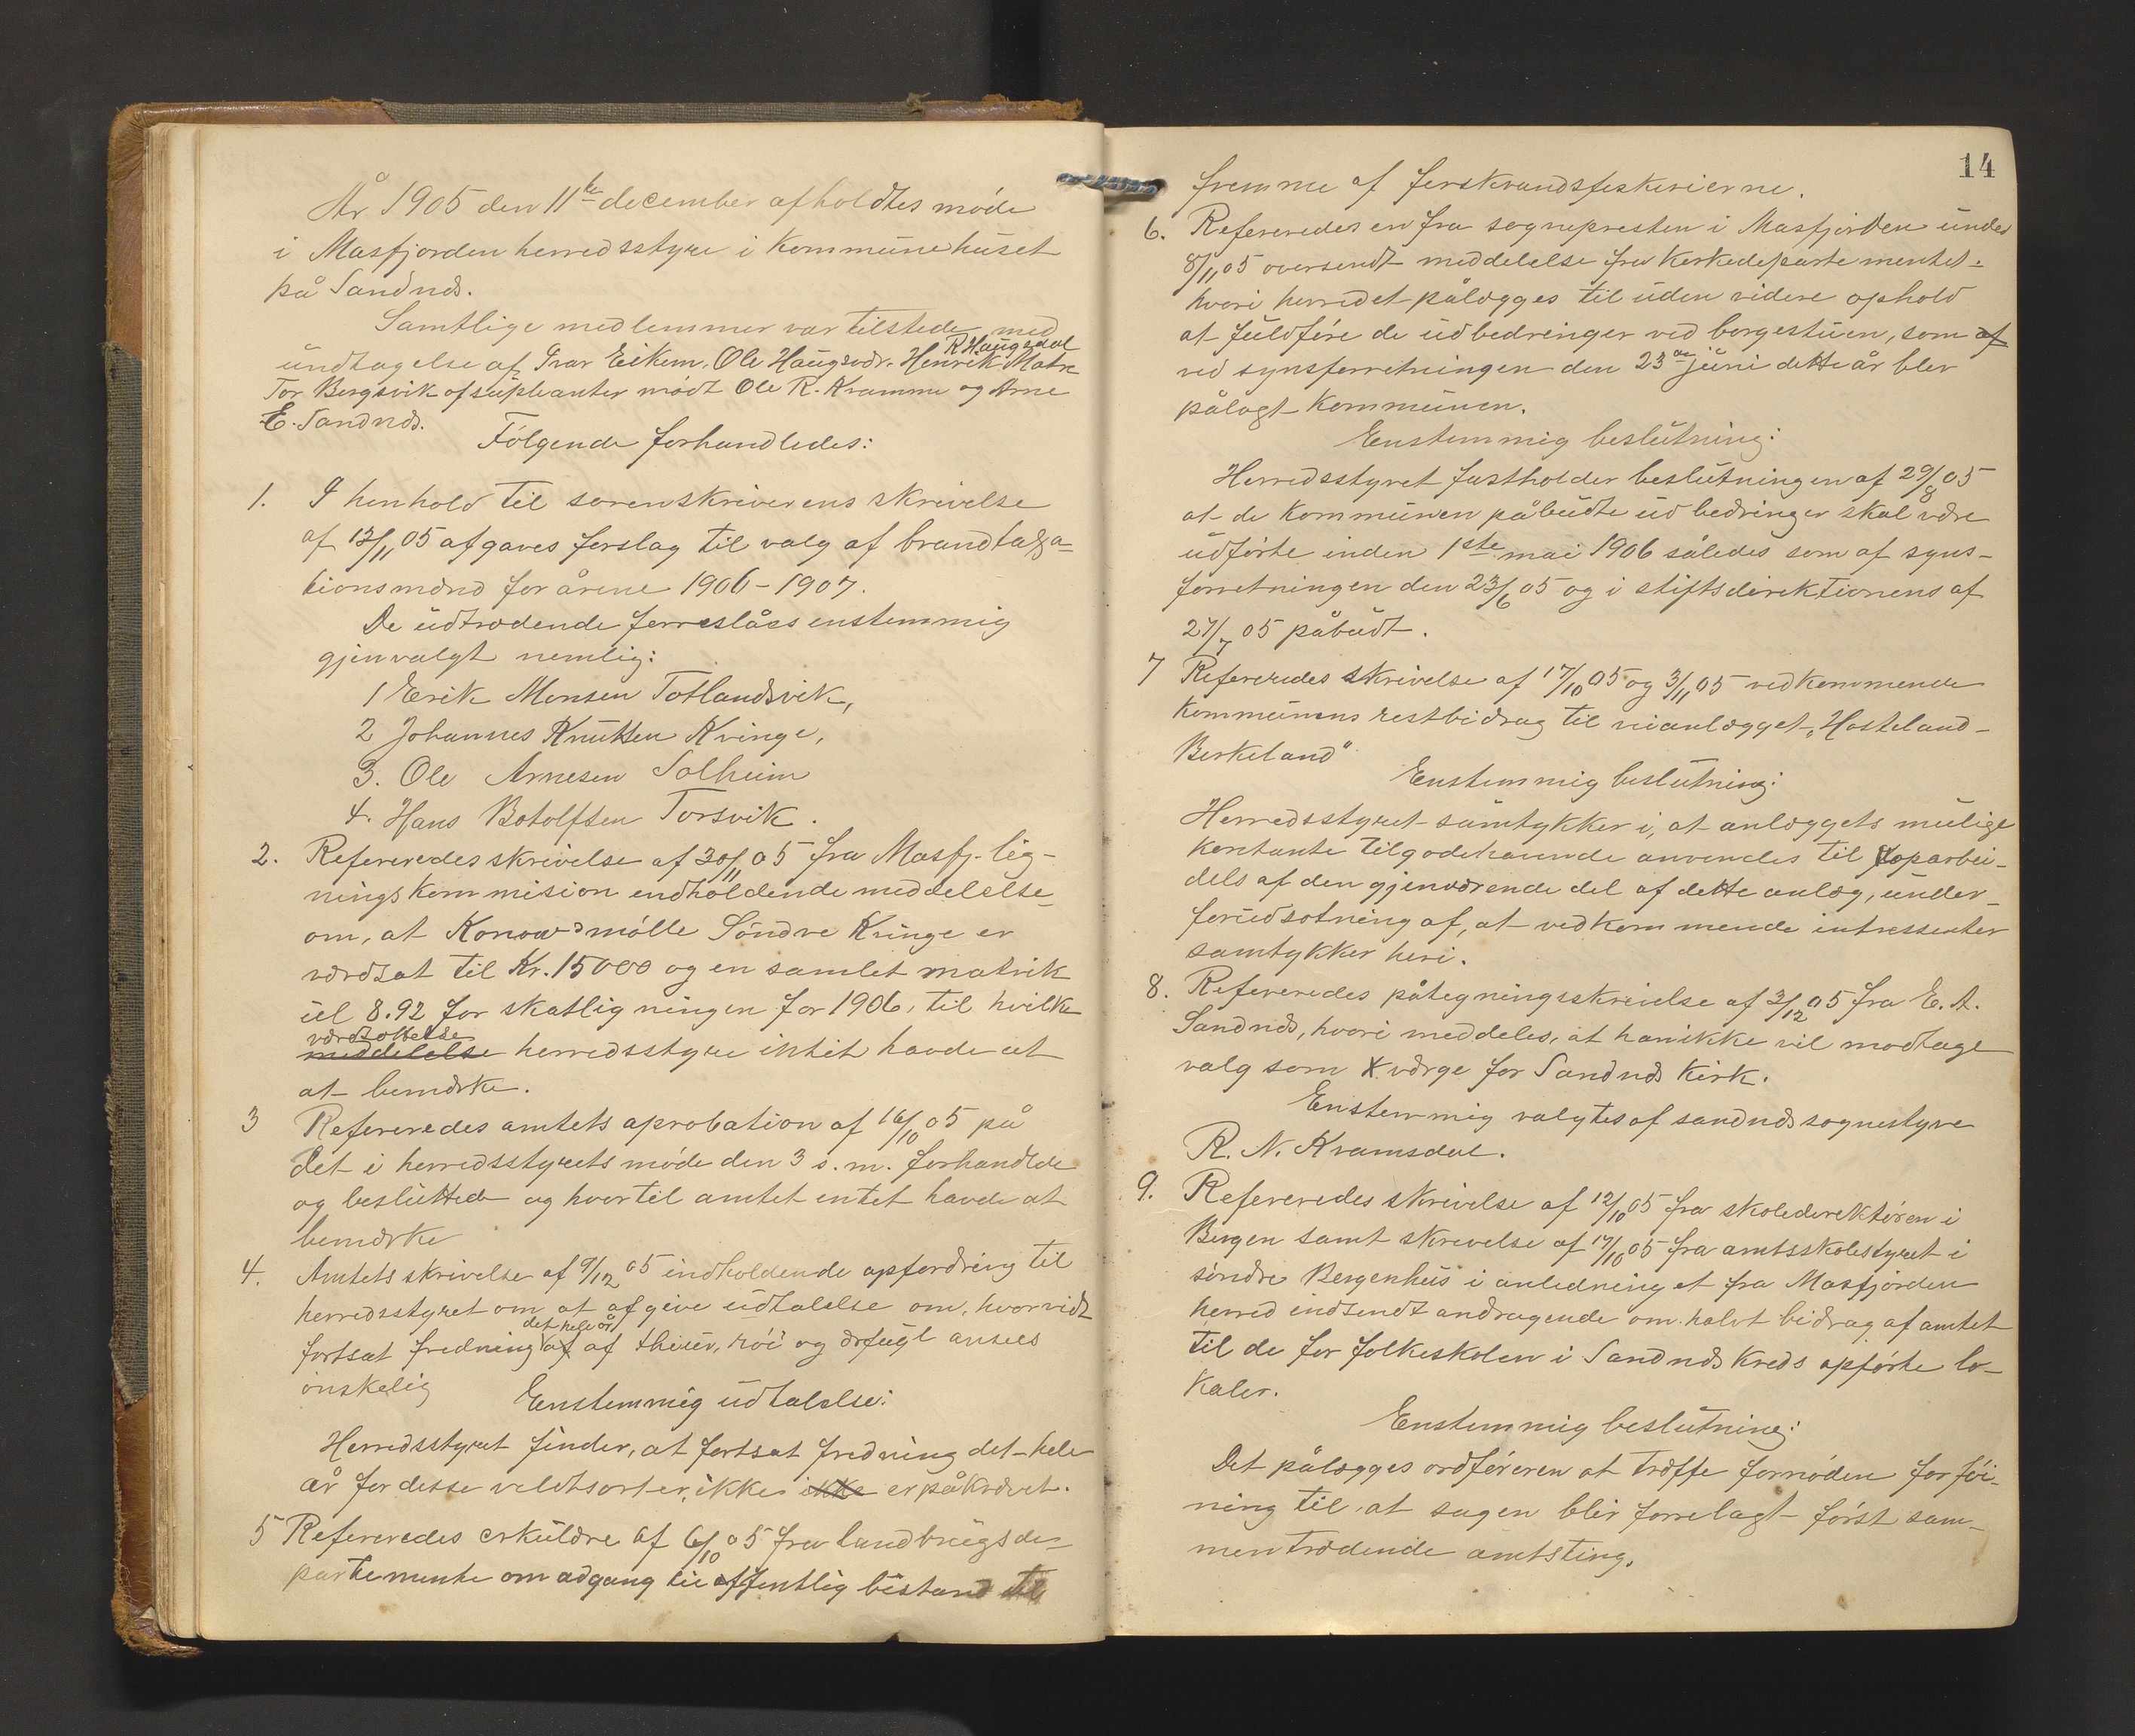 År 1905 den 11te december afholdtes møde
i Masfjorden herredsstyre i kommunehuset
på Sandnæs.
Samtlige medlemmer var tilstede med
R Haugsdal
undtagelse af Ivar Eikem, Ole Haugsvær. Henrik Matre
Tor Bergsvik af supleanter mødt Ole R. Kramme og Arne
E. Sandnæs.
Følgende forhandledes:
1. I henhold til sorenskriverens skrivelse
af 13/11 05 afgaves forslag til valg af brandtaxa=
tionsmænd for årene 1906-1907.
De udtrædende foreslåes enstemmig
gjenvalgt nemlig:
1 Erik Monsen Totlandsvik,
2 Johannes Knutsen Kvinge,
3. Ole Arnesen Solheim
4. Hans Botolfsen Torsvik.
2. Refereredes skrivelse af 30/11 05 fra Masfj. lig-
ningskommision endholdende meddelelse
om, at Konows mølle Søndre Kvinge er
værdsat til Kr. 15000 og en samlet matrik
ul 8.92 for skatligningen for 1906, til hvilke
værdsættelse
meddelelse herredsstyre intet havde at
at bemærke.
3 Refereredes amtets aprobation af 16/10 05 på
det i herredsstyrets møde den 3 s. m. forhandlede
og besluttede og hvortil amtet entet havde at
bemærke
4. Amtets skrivelse af 9/12 05 indholdende opfordring til
herredsstyret om at afgive udtalelse om, hvorvidt
det hele år
fortsat fredning af af thiur, røi og ærfugl ansees
ønskelig
Enstemmig udtalelse:
Herredsstyret finder, at fortsat fredning det hele
år for desse veldtsorter, ikke ikke er påkrævet.
5 Refereredes crkulære af 6/10 05 fra landbrugsde=
partemente om adgang til offentlig bistand til
14
fremme af ferskvandsfeskerierne.
6. Refereredes en fra sognepresten i Masfjorden under
8/11 05 oversendt meddelelse fra Kerkedepartementet:
hvori herredet pålægges til uden videre ophold
at fuldføre de udbedringer ved borgestuen, som af
ved synsforretningen den 23de juni dette år blev
pålagt kommunen.
Enstemmig beslutning:
Herredsstyret fastholder beslutningen af 29/8 05
at de kommunen påbudte udbedringer skal være
udførte inden 1ste mai 1906 således som af syns-
forretningen den 23/6 05 og i stiftsdirektionens af
27/7 05 påbudt.
7 Refereredes skrivelse af 17/10 05 og 3/11 05 vedkommende
kommunens restbidrag til vianlægget „Hosteland-
Berkeland"
Enstemmig beslutning:
Herredsstyret samtykker i, at anlæggets mulige
kontante tilgodehavende anvendes til oparbei-
dels af den gjenværende del af dette anlæg, under
forudsætning af, at vedkommende intressenter
samtykker heri.
8. Refereredes påtegningsskrivelse af 3/12 05 fra E. A.
Sandnæs, hvori meddeles, at han ikke vil modtage
valg som værge for Sandnæs kirk.
Enstemmig valgtes af sandnæs sognestyre
R. N. Kramsdal.
9. Refereredes skrivelse af 12/10 05 fra skoledirektøren i
Bergen samt skrivelse af 17/10 05 fra amtsskolestyret i
søndre Bergenhus i anledning et fra Masfjorden
herred indsendt andragende om halvt bidrag af amtet
til de for folkeskolen i Sandnæs kreds opførte lo-
kaler.
Enstemmig beslutning:
Det pålægges ordføreren at træffe fornøden forføi-
ning til, at sagen blir forelagt først sam-
mentrædende amtsting.